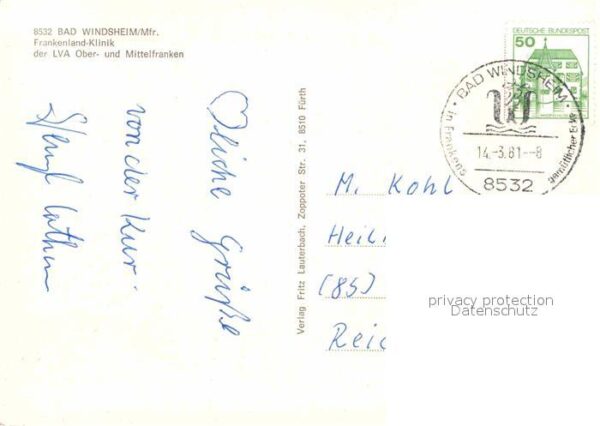 8532 BAD WINDSHEIM/Mfr.
Frankenland-Klinik
der LVA Ober- und Mittelfranken
♡liche Grüße
von der Kur.
Verlag Fritz Lauterbach, Zoppoter Str. 31, 8510 Fürth
DEUTSCHE BUNDESPOST
50
BAD WINDSHEIM
14.-3.81--8
8532
M. Kohl
Heil
(85)
Reic
privacy protection
Datenschutz